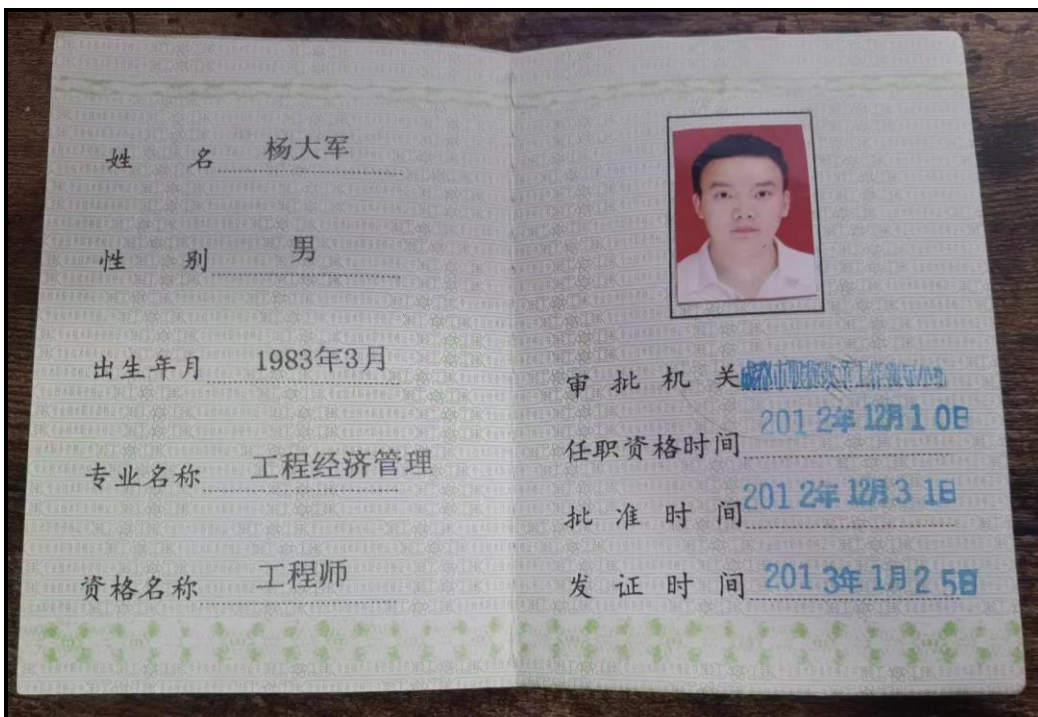 姓 名 杨大军
性 别 男
出生年月 1983年3月
专业名称 工程经济管理
资格名称 工程师
审批机关 成都市职称改革工作领导小组
任职资格时间 2012年12月10日
批准时间 2012年12月31日
发证时间 2013年1月25日